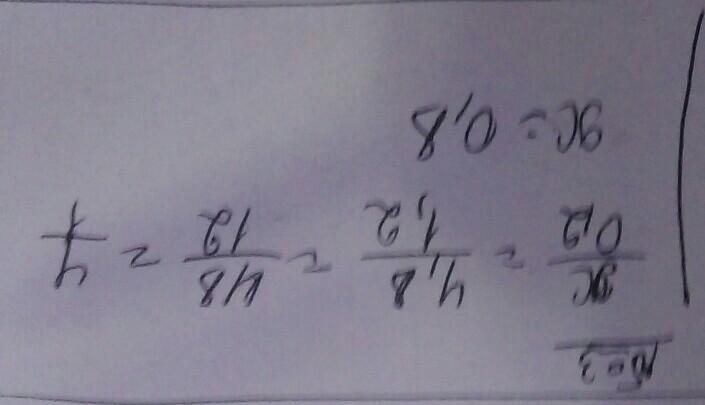 №3
x/0,2 = 4,8/1,2 = 48/12 = 4/1
x = 0,8